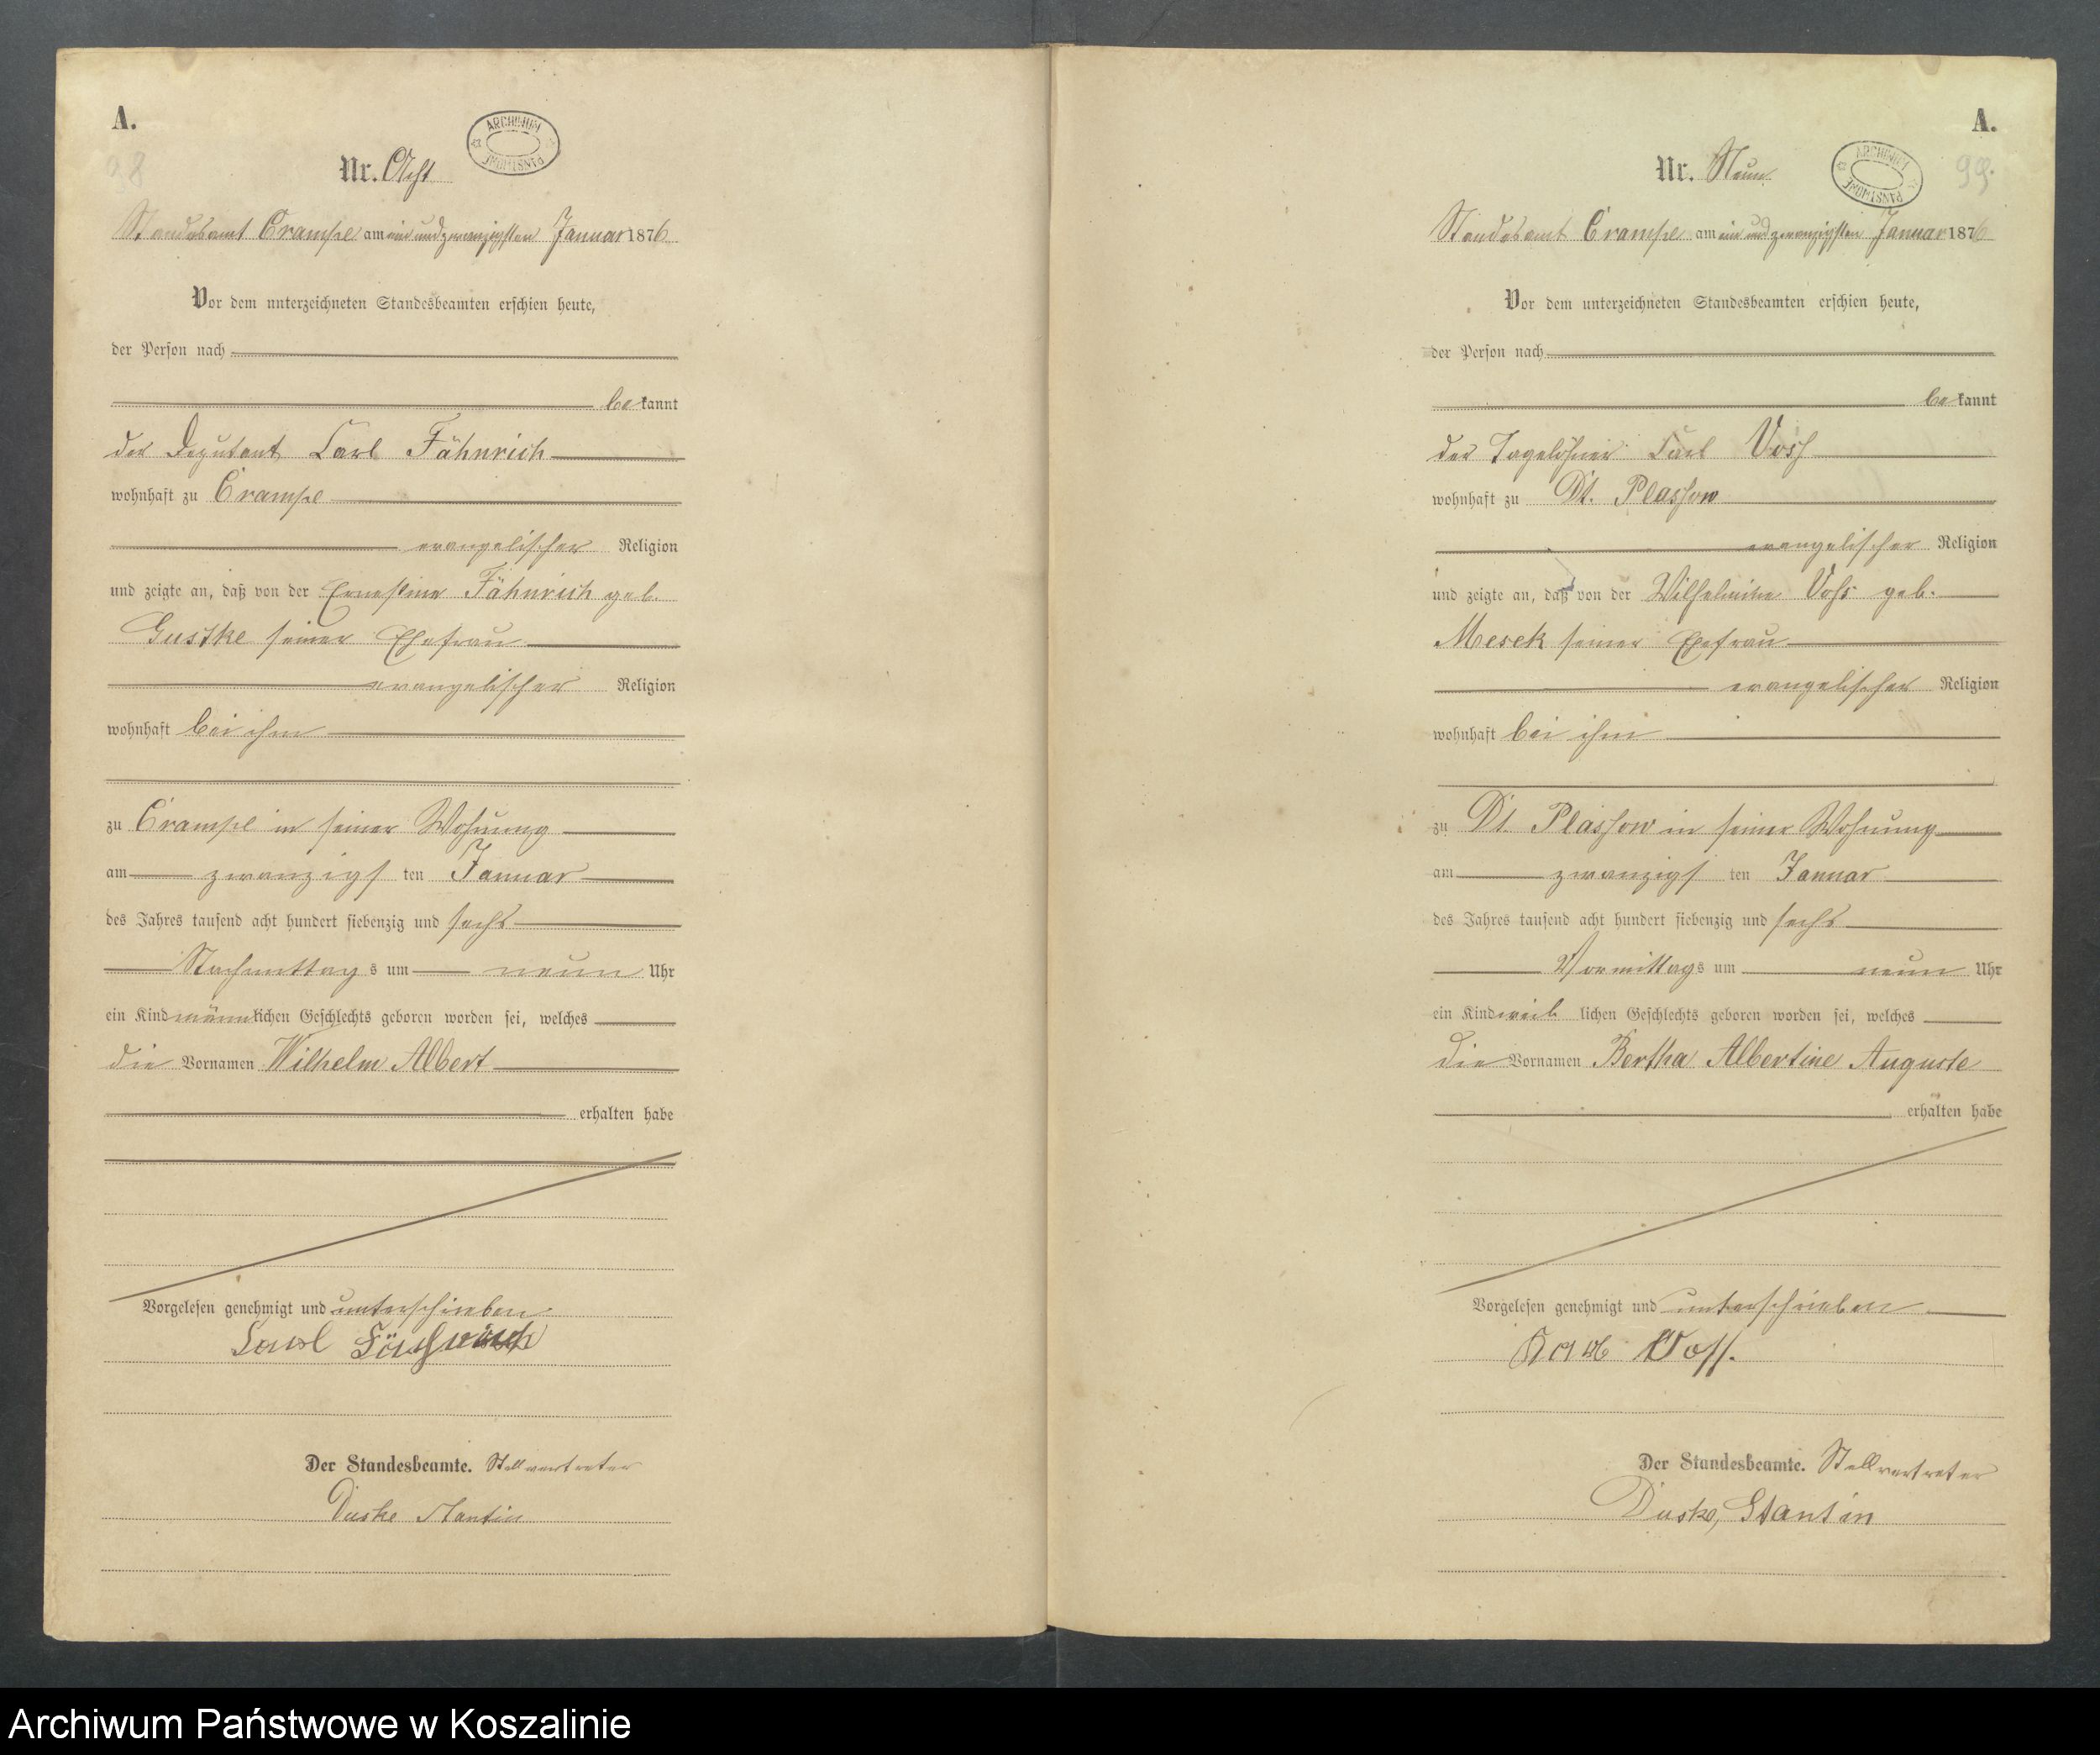 A.
98
Nr. Acht
ARCHIWUM PAŃSTWOWE
Standesamt Crampe am ein und zwanzigsten Januar 1876
Vor dem unterzeichneten Standesbeamten erschien heute,
der Person nach
bekannt
der Deputant Carl Fähnrich
wohnhaft zu Crampe
evangelischer Religion
und zeigte an, daß von der Ernestine Fähnrich geb.
Gustke seiner Ehefrau
evangelischer Religion
wohnhaft bei ihm
zu Crampe in seiner Wohnung
am zwanzigsten Januar
des Jahres tausend acht hundert siebenzig und sechs
Nachmittags um neun Uhr
ein Kind männlichen Geschlechts geboren worden sei, welches
die Vornamen Wilhelm Albert
erhalten habe
Vorgelesen genehmigt und unterschrieben.
Carl Fähnrich
Der Standesbeamte. Stellvertreter
Duske Stantin
A.
99.
Nr. Neun
ARCHIWUM PAŃSTWOWE
Standesamt Crampe am ein und zwanzigsten Januar 1876
Vor dem unterzeichneten Standesbeamten erschien heute,
der Person nach
bekannt
der Tagelöhner Carl Voss
wohnhaft zu Dt. Plassow
evangelischer Religion
und zeigte an, daß von der Wilhelmine Voss geb.
Mesek seiner Ehefrau
evangelischer Religion
wohnhaft bei ihm
zu Dt. Plassow in seiner Wohnung
am zwanzigsten Januar
des Jahres tausend acht hundert siebenzig und sechs
Vormittags um neun Uhr
ein Kind weiblichen Geschlechts geboren worden sei, welches
die Vornamen Bertha Albertine Auguste
erhalten habe
Vorgelesen genehmigt und unterschrieben
Karl Voss.
Der Standesbeamte. Stellvertreter
Duske, Stantin
Archiwum Państwowe w Koszalinie